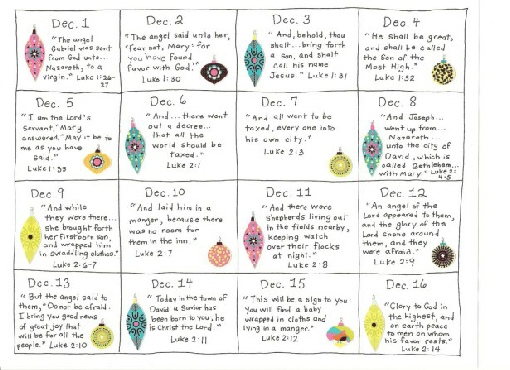 Dec. 1
"The angel
Gabriel was sent
from God unto...
Nazareth, to a
virgin." Luke 1:26-
27
Dec. 2
"The angel said unto her,
'fear not, Mary: for
you have found
favor with God.'"
Luke 1:30
Dec. 3
"And, behold, thou
shalt... bring forth
a son, and shalt
call his name
Jesus." Luke 1:31
Dec 4
"He shall be great,
and shall be called
the Son of the
Most High."
Luke 1:32
Dec. 5
"I am the Lord's
servant,' Mary
answered. 'May it be to
me as you have
said.'"
Luke 1:38
Dec. 6
"And... there went
out a decree...
that all the
world should be
taxed."
Luke 2:1
Dec. 7
"And all went to be
taxed, every one into
his own city."
Luke 2:3
Dec. 8
"And Joseph...
went up from...
Nazareth...
unto the city of
David, which is
called Bethlehem...
with Mary" Luke 2:
4-5
Dec 9
"And while
they were there...
she brought forth
her firstborn son,
and wrapped him
in swaddling clothes."
Luke 2:6-7
Dec. 10
"And laid him in a
manger, because there
was no room for
them in the inn."
Luke 2:7
Dec. 11
"And there were
shepherds living out
in the fields nearby,
keeping watch
over their flocks
at night."
Luke 2:8
Dec. 12
"An angel of the
Lord appeared to them,
and the glory of the
Lord shone around
them, and they
were afraid."
Luke 2:9
Dec. 13
"But the angel said to
them, "Do not be afraid.
I bring you good news
of great joy that
will be for all the
people." Luke 2:10
Dec. 14
"Today in the town of
David a Savior has
been born to you, he
is Christ the Lord"
Luke 2:11
Dec. 15
"This will be a sign to you
You will find a baby
wrapped in cloths and
lying in a manger."
Luke 2:12
Dec. 16
"Glory to God in
the highest, and
on earth peace
to men on whom
his favor rests."
Luke 2:14